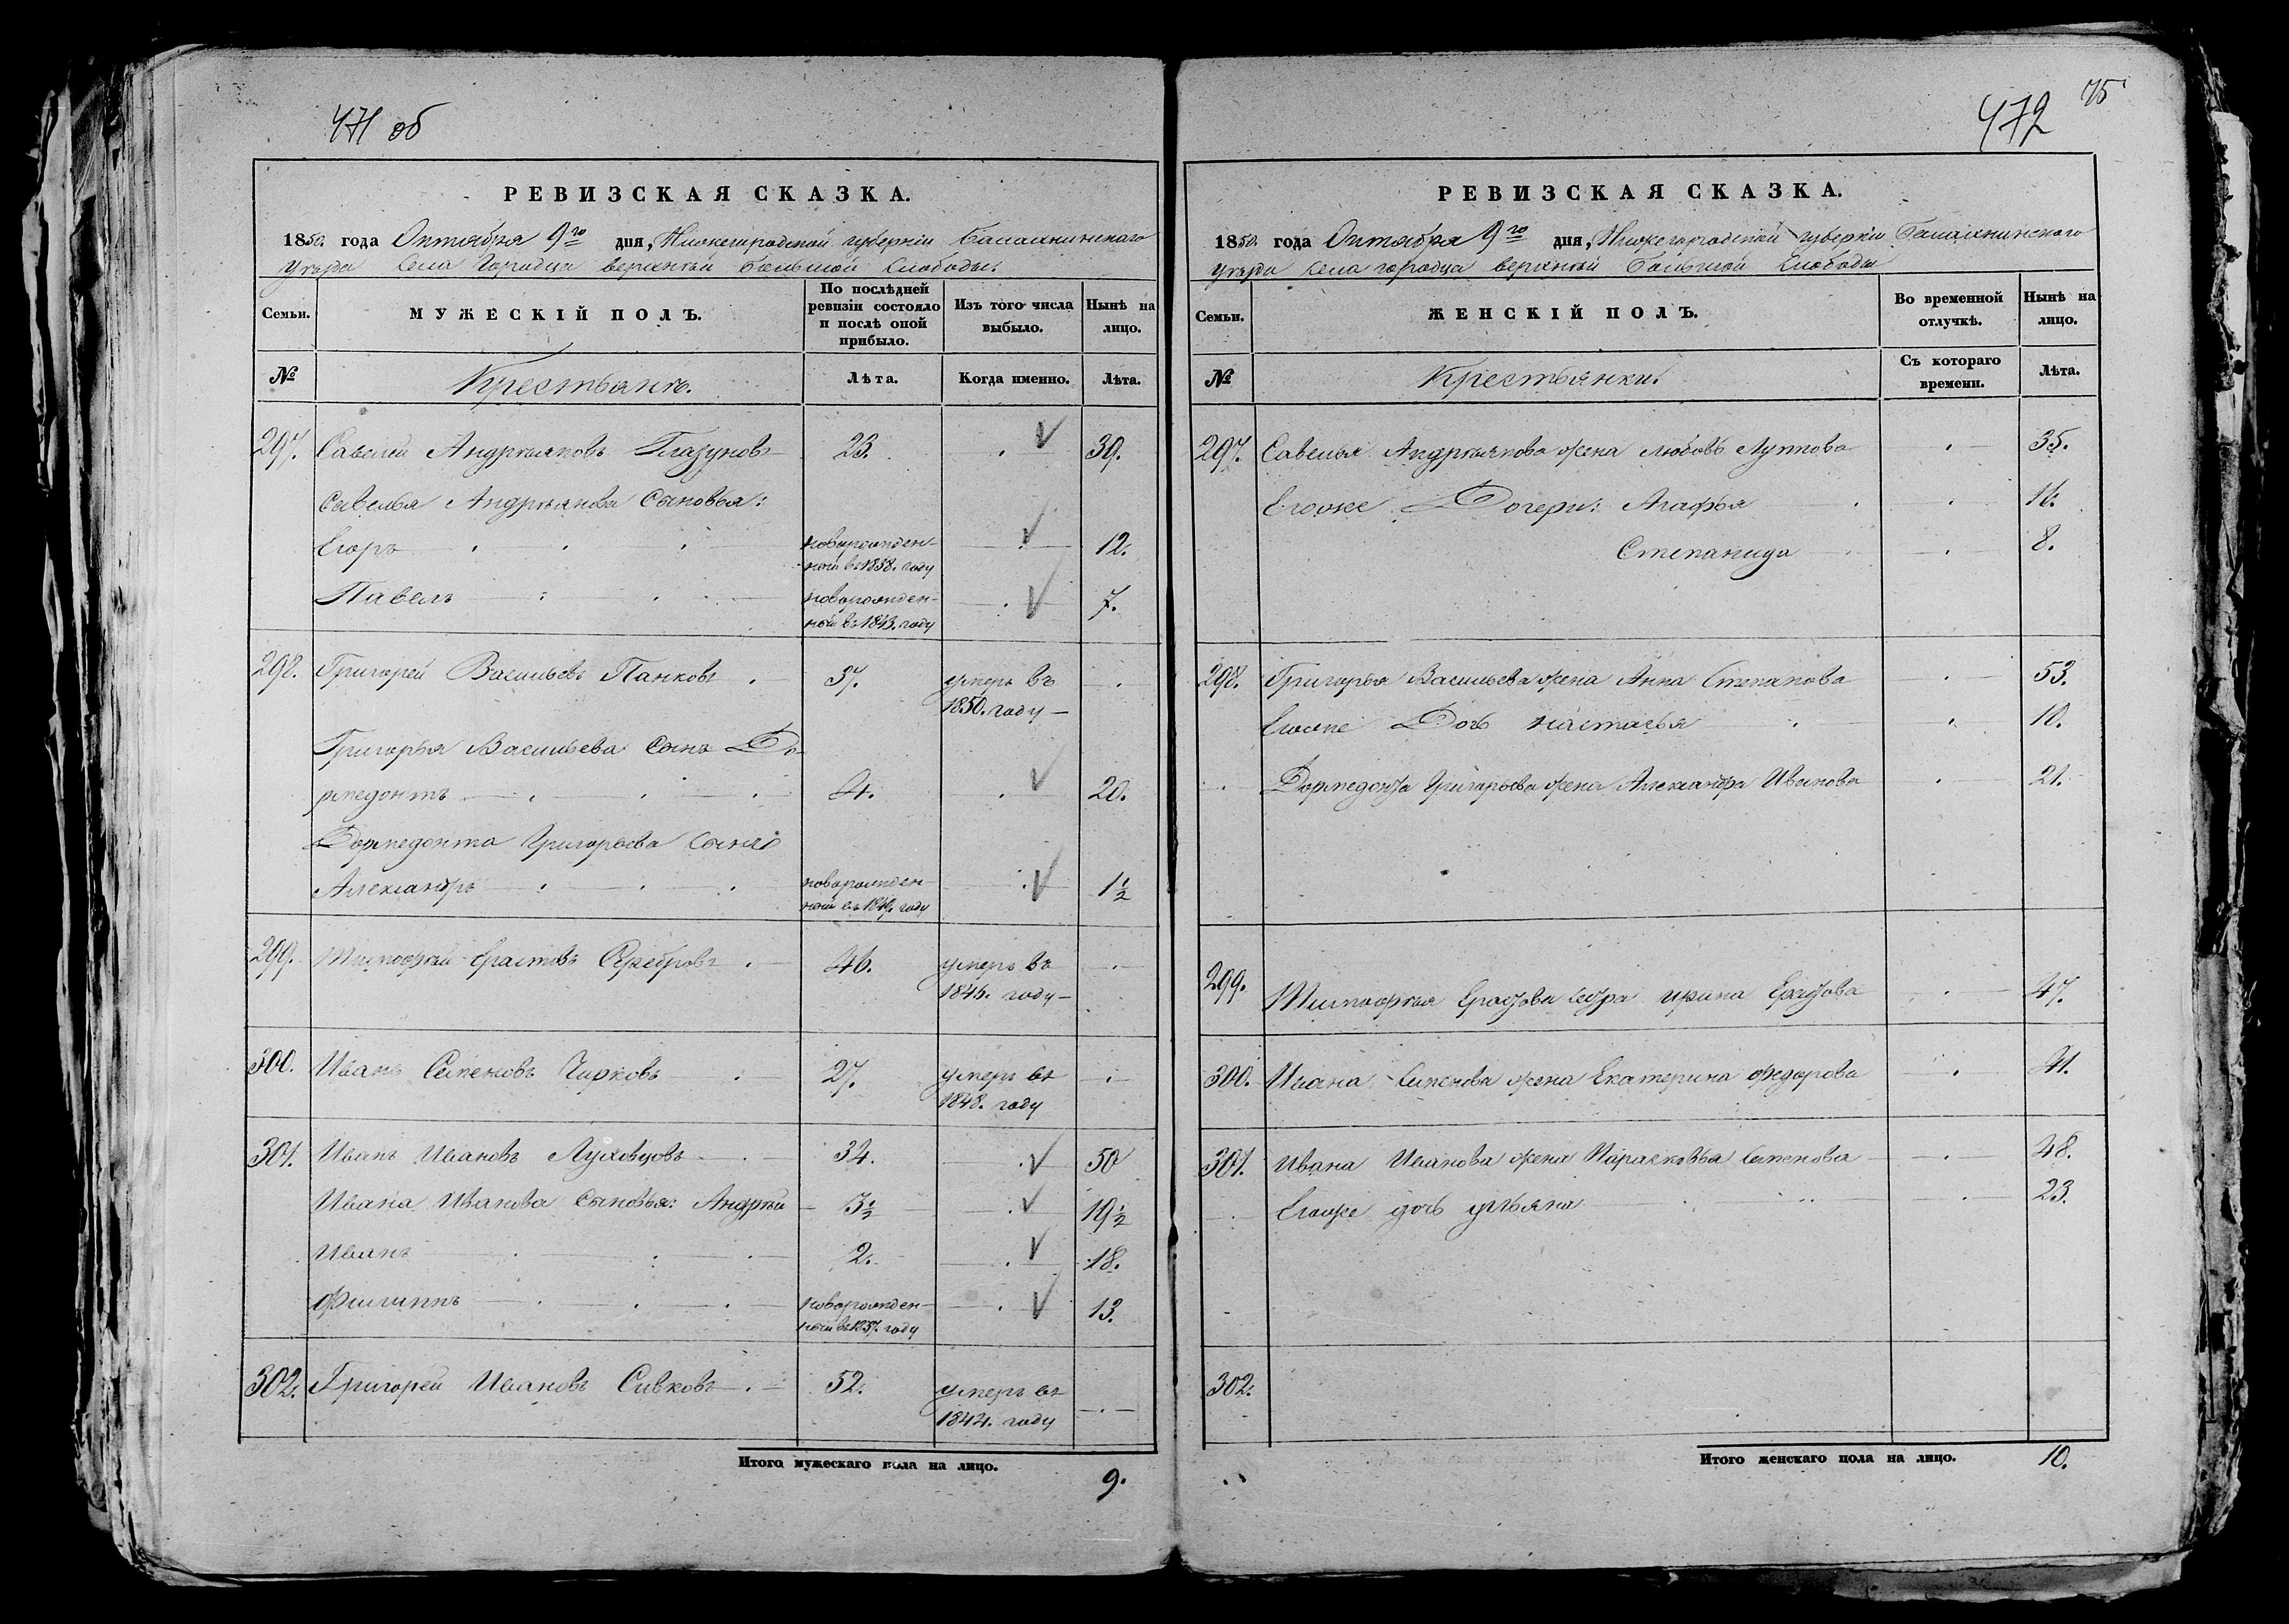 471 об
РЕВИЗСКАЯ СКАЗКА.
1850. года Октября 9го дня, Нижегородской губерніи Балахнинскаго
уѣзда Села Городца верхнѣй большой Слободы.
Семьи.
МУЖЕСКІЙ ПОЛЪ.
По послѣдней ревизіи состояло и послѣ оной прибыло.
Изъ того числа выбыло.
Нынѣ на лицо.
№
Крестьянъ.
Лѣта.
Когда именно.
Лѣта.
297. Савелей Андрѣяновъ Глазуновъ 23. 39.
Савелья Андрѣянова Сыновья:
Егоръ новорожден-
ной въ 1838. году 12.
Павелъ новорожден-
ной въ 1843. году 7.
298. Григорей Васильевъ Панковъ 37. умеръ въ
1850. году
Григорья Васильева Сынъ До-
рмедонтъ 4. 20.
Дормедонта Григорьева Сынъ
Александръ новорожден-
ной въ 1849. году 1 1/2
299. Тимофѣй Ерастовъ Серебровъ 46. умеръ въ
1846. году
300. Иванъ Семеновъ Чирковъ 27. умеръ въ
1848. году
301. Иванъ Ивановъ Луховцовъ 34. 50
Ивана Иванова Сыновья: Андрѣй 3 1/2 19 1/2
Иванъ 2. 18.
Филиппъ новорожден-
ной въ 1837. году 13.
302. Григорей Ивановъ Сивковъ 52. умеръ въ
1844. году
Итого мужескаго пола на лицо. 9.
472 75
РЕВИЗСКАЯ СКАЗКА.
1850. года Октября 9го дня, Нижегородской губерніи Балахнинского
уѣзда Села городца верхнѣй большой Слободы
Семьи.
ЖЕНСКІЙ ПОЛЪ.
Во временной отлучкѣ.
Нынѣ на лицо.
№
Крестьянки.
Съ котораго времени.
Лѣта.
297. Савелья Андрѣянова жена любовь Луппова 35.
Егоже Дочери: Агафья 16.
Степанида 8.
298. Григорья Васильева жена Анна Степанова 53.
Егоже Дочь настасья 10.
Дормедонта Григорьева жена Александра Иванова 21.
299. Тимофѣя Ерастова сестра ирина Ерастова 47.
300. Ивана Семенова жена Екатерина Федорова 41.
301. Ивана Иванова жена Парасковья Семенова 48.
Егоже дочь ульяна 23.
302.
Итого женскаго пола на лицо. 10.